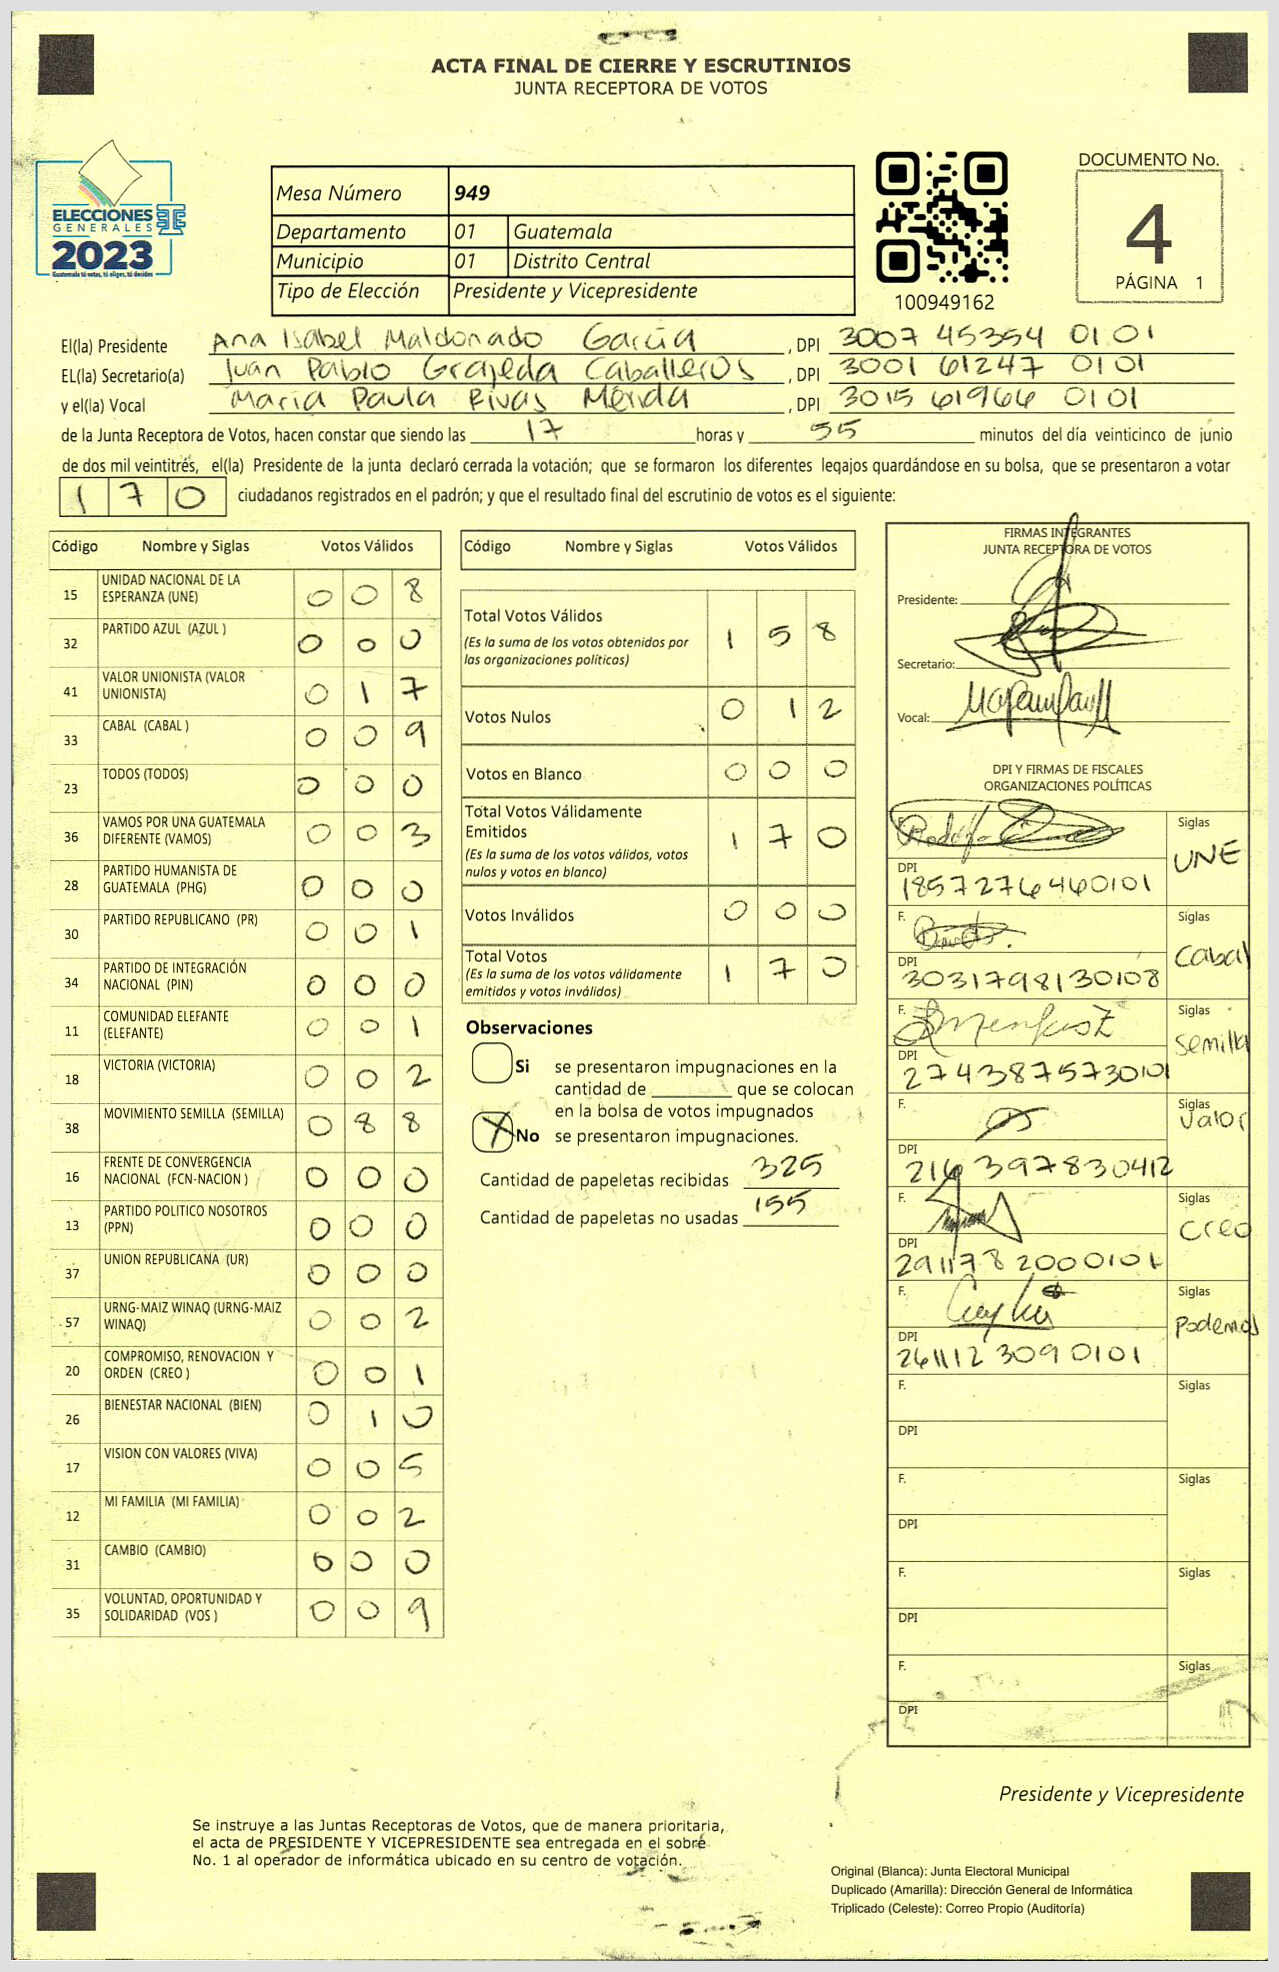 ACTA FINAL DE CIERRE Y ESCRUTINIOS
JUNTA RECEPTORA DE VOTOS
ELECCIONES
GENERALES
2023
Guatemala tú votas, tú eliges, tú decides
Mesa Número 949
Departamento 01 Guatemala
Municipio 01 Distrito Central
Tipo de Elección Presidente y Vicepresidente
100949162
DOCUMENTO No.
4
PÁGINA 1
El(la) Presidente Ana Isabel Maldonado García , DPI 3007 45354 0101
EL(la) Secretario(a) Juan Pablo Grajeda Caballeros , DPI 3001 61247 0101
y el(la) Vocal María Paula Rivas Mérida , DPI 3015 61966 0101
de la Junta Receptora de Votos, hacen constar que siendo las 17 horas y 55 minutos del día veinticinco de junio
de dos mil veintitrés, el(la) Presidente de la junta declaró cerrada la votación; que se formaron los diferentes legajos guardándose en su bolsa, que se presentaron a votar
170 ciudadanos registrados en el padrón; y que el resultado final del escrutinio de votos es el siguiente:
Código Nombre y Siglas Votos Válidos
15 UNIDAD NACIONAL DE LA ESPERANZA (UNE) 0 0 8
32 PARTIDO AZUL (AZUL ) 0 0 0
41 VALOR UNIONISTA (VALOR UNIONISTA) 0 1 7
33 CABAL (CABAL ) 0 0 9
23 TODOS (TODOS) 0 0 0
36 VAMOS POR UNA GUATEMALA DIFERENTE (VAMOS) 0 0 3
28 PARTIDO HUMANISTA DE GUATEMALA (PHG) 0 0 0
30 PARTIDO REPUBLICANO (PR) 0 0 1
34 PARTIDO DE INTEGRACIÓN NACIONAL (PIN) 0 0 0
11 COMUNIDAD ELEFANTE (ELEFANTE) 0 0 1
18 VICTORIA (VICTORIA) 0 0 2
38 MOVIMIENTO SEMILLA (SEMILLA) 0 8 8
16 FRENTE DE CONVERGENCIA NACIONAL (FCN-NACION ) 0 0 0
13 PARTIDO POLITICO NOSOTROS (PPN) 0 0 0
37 UNION REPUBLICANA (UR) 0 0 0
57 URNG-MAIZ WINAQ (URNG-MAIZ WINAQ) 0 0 2
20 COMPROMISO, RENOVACION Y ORDEN (CREO ) 0 0 1
26 BIENESTAR NACIONAL (BIEN) 0 1 0
17 VISION CON VALORES (VIVA) 0 0 5
12 MI FAMILIA (MI FAMILIA) 0 0 2
31 CAMBIO (CAMBIO) 0 0 0
35 VOLUNTAD, OPORTUNIDAD Y SOLIDARIDAD (VOS ) 0 0 9
Código Nombre y Siglas Votos Válidos
Total Votos Válidos 1 5 8
(Es la suma de los votos obtenidos por
las organizaciones políticas)
Votos Nulos 0 1 2
Votos en Blanco 0 0 0
Total Votos Válidamente
Emitidos 1 7 0
(Es la suma de los votos válidos, votos
nulos y votos en blanco)
Votos Inválidos 0 0 0
Total Votos 1 7 0
(Es la suma de los votos válidamente
emitidos y votos inválidos)
Observaciones
Si se presentaron impugnaciones en la
cantidad de ________ que se colocan
en la bolsa de votos impugnados
X No se presentaron impugnaciones.
Cantidad de papeletas recibidas 325
Cantidad de papeletas no usadas 155
FIRMAS INTEGRANTES
JUNTA RECEPTORA DE VOTOS
Presidente:
Secretario:
Vocal:
DPI Y FIRMAS DE FISCALES
ORGANIZACIONES POLÍTICAS
F. Siglas UNE
DPI 1857276460101
F. Siglas Cabal
DPI 3031798130108
F. Siglas Semilla
DPI 2743875730101
F. Siglas Valor
DPI 216 397830412
F. Siglas Creo
DPI 291178 2000101
F. Siglas Podemos
DPI 261112 3090101
F. Siglas
DPI
F. Siglas
DPI
F. Siglas
DPI
F. Siglas
DPI
Presidente y Vicepresidente
Se instruye a las Juntas Receptoras de Votos, que de manera prioritaria,
el acta de PRESIDENTE Y VICEPRESIDENTE sea entregada en el sobre
No. 1 al operador de informática ubicado en su centro de votación.
Original (Blanca): Junta Electoral Municipal
Duplicado (Amarilla): Dirección General de Informática
Triplicado (Celeste): Correo Propio (Auditoría)